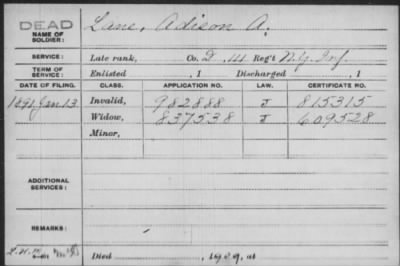 DEAD
NAME OF SOLDIER: Lane, Adison A.
SERVICE: Late rank, Co. D, 141 Reg't N.Y. Inf.
TERM OF SERVICE: Enlisted , 1 Discharged , 1
DATE OF FILING. CLASS. APPLICATION NO. LAW. CERTIFICATE NO.
1891, Jan 13 Invalid, 982888 J 815315
Widow, 837538 J 609528
Minor,
ADDITIONAL SERVICES:
REMARKS:
Died , 1909, at